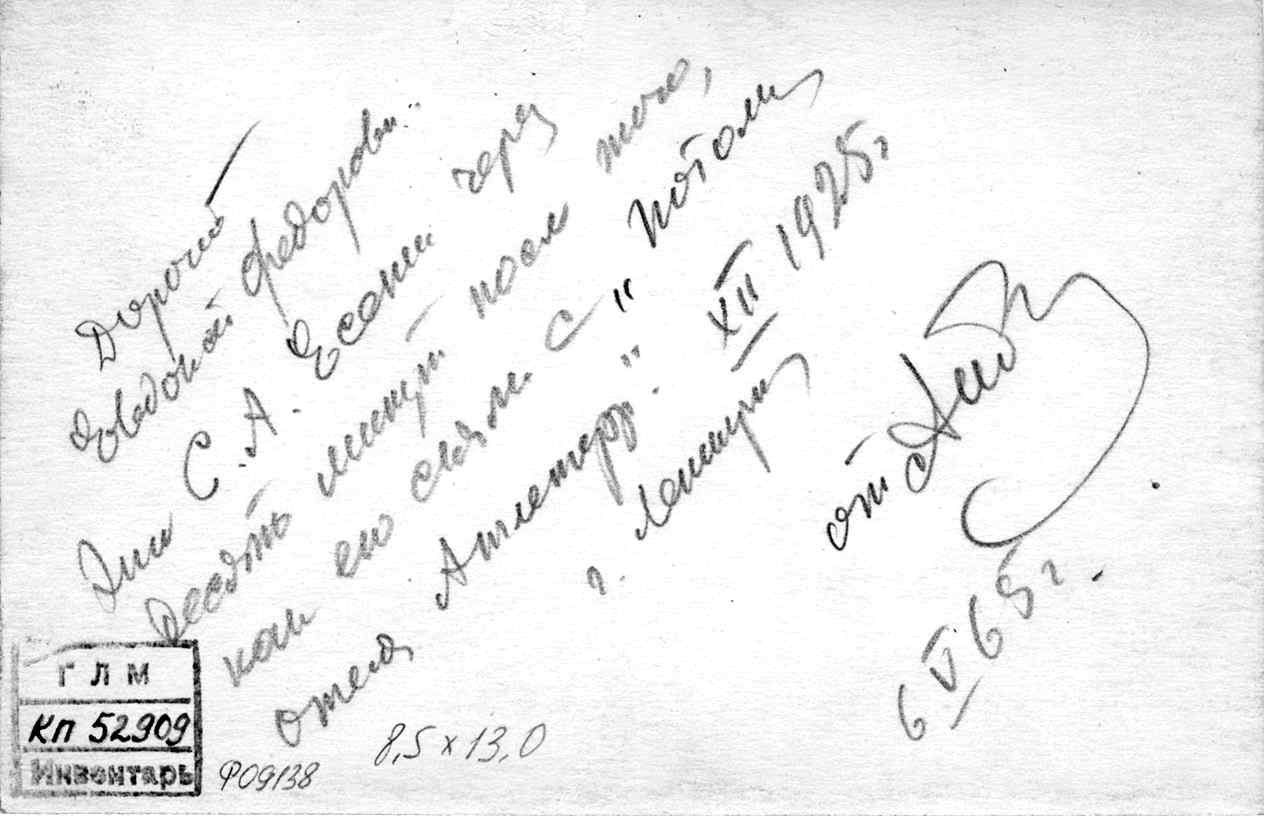 Дорогой
Евдокией Федоровн..
Это С.А. Есенин через
десять минут после того,
как его сняли с "потолка
отеля Англетерр." XII 1925г
г. Ленинград
от
6 V 65г.
ГЛМ
КП 52909
Инвентарь
РО9138
8,5 x 13,0